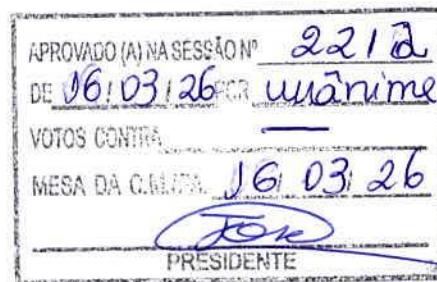 APROVADO (A) NA SESSÃO Nº 221ª
DE 16/03/26 POR unânime
VOTOS CONTRA —
MESA DA 16/03/26
PRESIDENTE